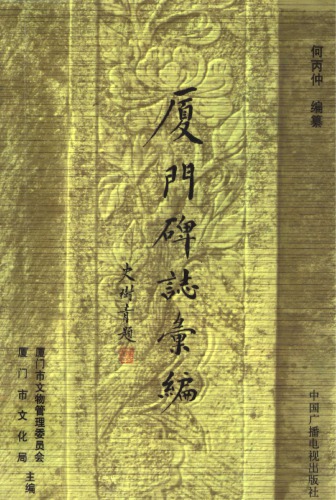 何丙仲 编纂
厦門碑誌彙編
史树青題
厦门市文物管理委员会
厦门市文化局
主编
中国广播电视出版社